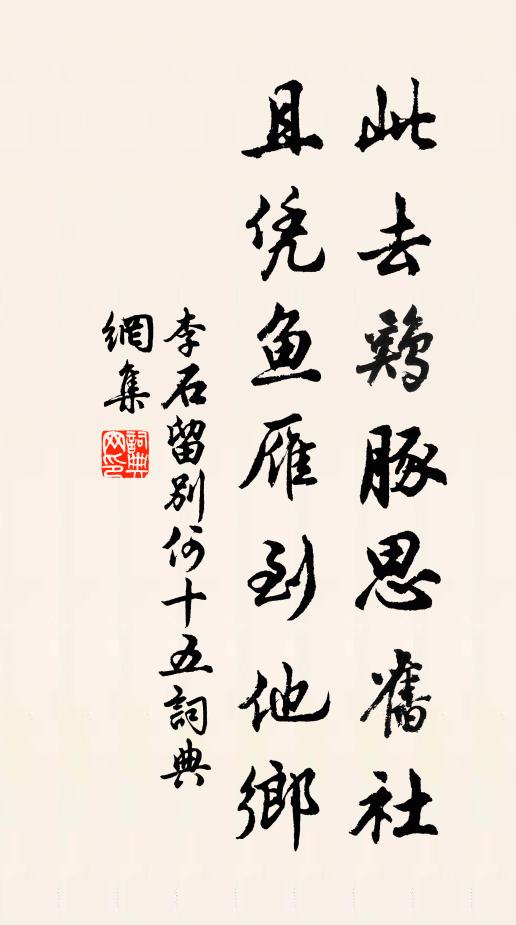 此去鷄豚思舊社
且凭鱼雁到他鄉
李石留别何十五詞典
網集
詞典
网印